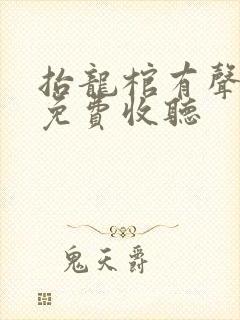 抬龍棺有聲
免費收聽
鬼天爵